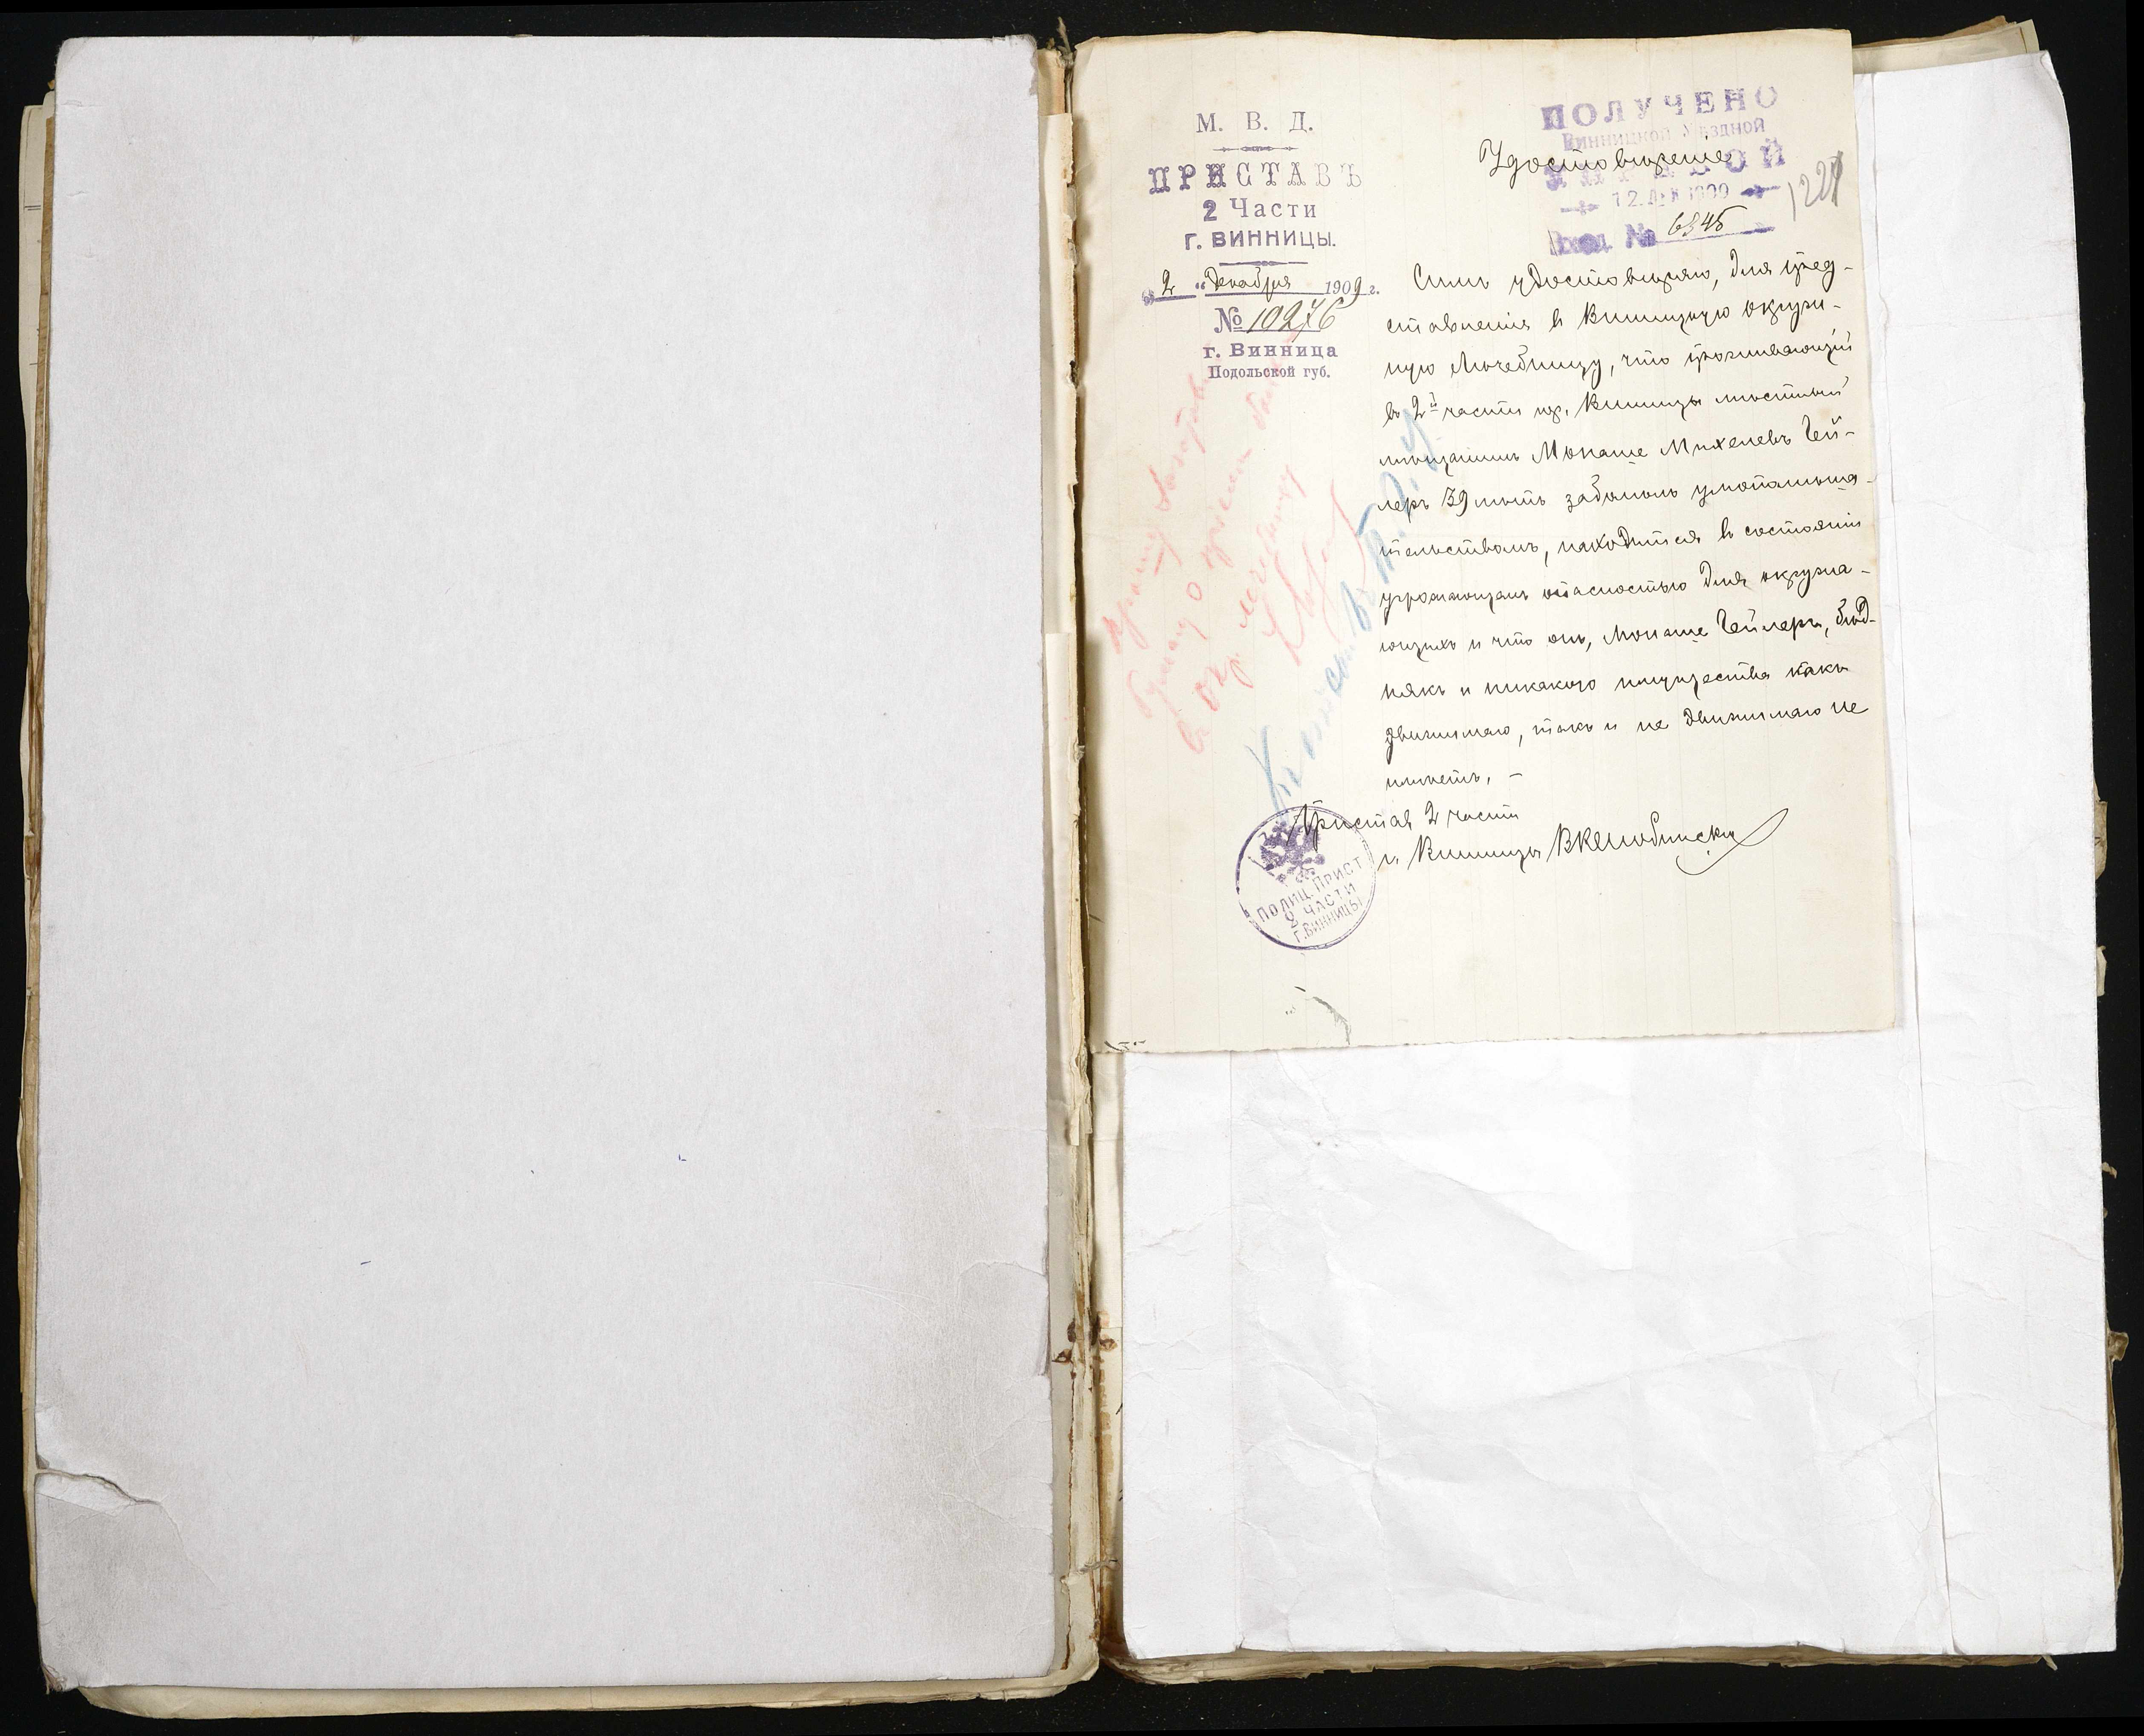 М. В. Д.
ПРИСТАВЪ
2 Части
г. ВИННИЦЫ.
„2“ Декабря 1909 г.
№ 10276
г. Винница
Подольской губ.
ПОЛУЧЕНО
Винницкой Уѣздной
12. ДЕК 1909
Вход. № 6345
Удостовѣреніе
Симъ удостовѣряю, для пред-
ставленія въ Винницкую окруж-
ную Лечебницу, что проживающій
въ 2й части гор. Винницы мѣстный
мѣщанинъ Монаше Михелевъ Гей-
леръ 39 лѣтъ заболѣлъ умопомѣша-
тельствомъ, находится въ состояніи
угрожающемъ опасностью для окружа-
ющихъ и что онъ, Монаше Гейлеръ, бѣд-
някъ и никакого имущества какъ
движимаго, такъ и не движимаго не
имѣетъ, -
Пристав 2 части
г. Винницы
ПОЛИЦ. ПРИСТ
2 ЧАСТИ
Г. ВИННИЦЫ
Прошу
о
въ окр. лечебницу